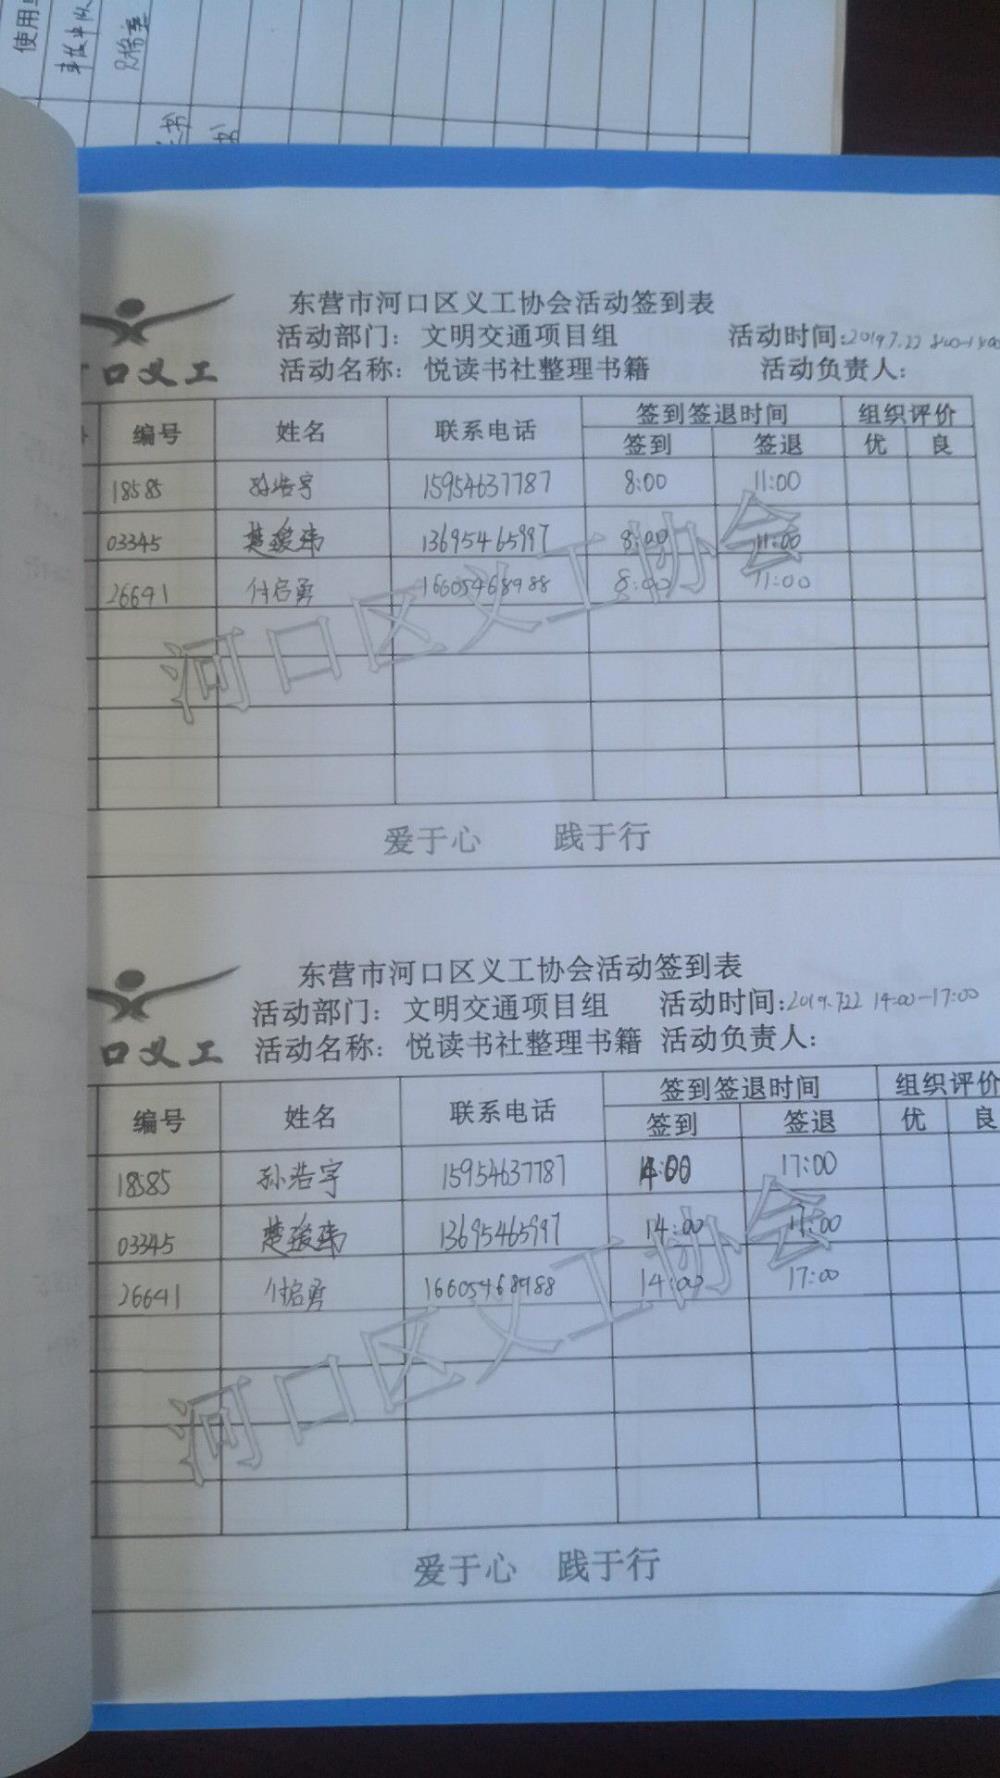 使用
东营市河口区义工协会活动签到表
活动部门：文明交通项目组 活动时间：2019.7.22 8:00-
口义工 活动名称：悦读书社整理书籍 活动负责人：
编号 姓名 联系电话 签到签退时间 组织评价
签到 签退 优 良
18585 孙浩宇 15954637787 8:00 11:00
03345 楚骏玮 13695465997 8:00 11:00
26641 付启勇 16605468988 8:00 11:00
河口区义工协会
爱于心 践于行
东营市河口区义工协会活动签到表
活动部门：文明交通项目组 活动时间：2019.7.22 14:00-17:00
口义工 活动名称：悦读书社整理书籍 活动负责人：
编号 姓名 联系电话 签到签退时间 组织评价
签到 签退 优 良
18585 孙浩宇 15954637787 14:00 17:00
03345 楚骏玮 13695465997 14:00 17:00
26641 付启勇 16605468988 14:00 17:00
河口区义工协会
爱于心 践于行